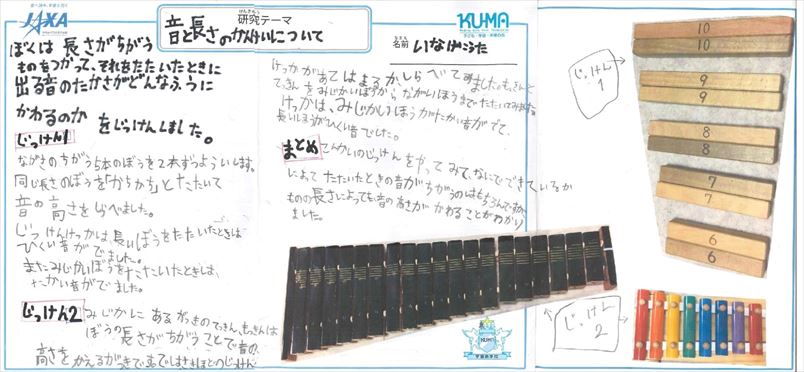 JAXA
研究テーマ
けんきゅう
音と長さのかんけいについて
KUMA
子ども・宇宙・未来の会
名前
なまえ
いなげこうた
ぼくは 長さがちがう
ものをつかって、それをたたいたときに
出る音のたかさがどんなふうに
かわるのか をじっけんしました。
じっけん1
ながさのちがう5本のぼうを2本ずつよういします。
同じ長さのぼうを「かちかち」とたたいて
音の高さをしらべました。
じっけんけっかは、長いぼうをたたいたときは
ひくい音がでました。
またみじかいぼうをたたいたときは、
たかい音がでました。
じっけん2 みじかにあるがっきのてっきん、もっきんは
ぼうの長さがちがうことで音の
高さをかえるがっきです。ではさきほどのじっけん
けっかがあてはまるか、しらべてみました。もっきんと
てっきんをみじかいぼうから ながいほうまでたたいてみました。
けっかは、みじかいほうがたかい音がでて、
長いほうがひくい音でした。
まとめ こんかいのじっけんをやってみて、なにでできているか
によってたたいたときの音がちがうのはもちろんですが
ものの長さによっても、音の高さが かわることがわかり
ました。
じっけん
1
10
10
9
9
8
8
7
7
6
6
じっけん
2
KUMA
宇宙の学校